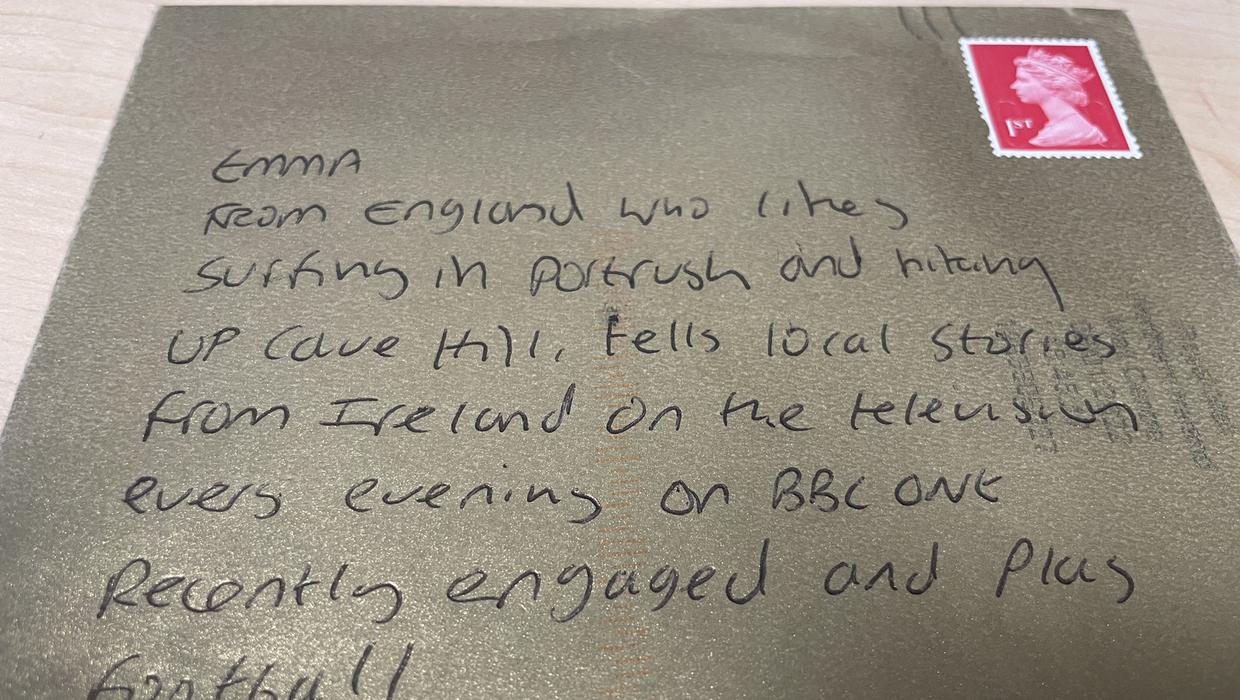 1ST
EMMA
FROM ENGLAND WHO likes
surfing in portrush and hiking
UP Cave Hill. Tells local stories
from Ireland on the television
every evening on BBC ONE
Recently engaged and plays
football